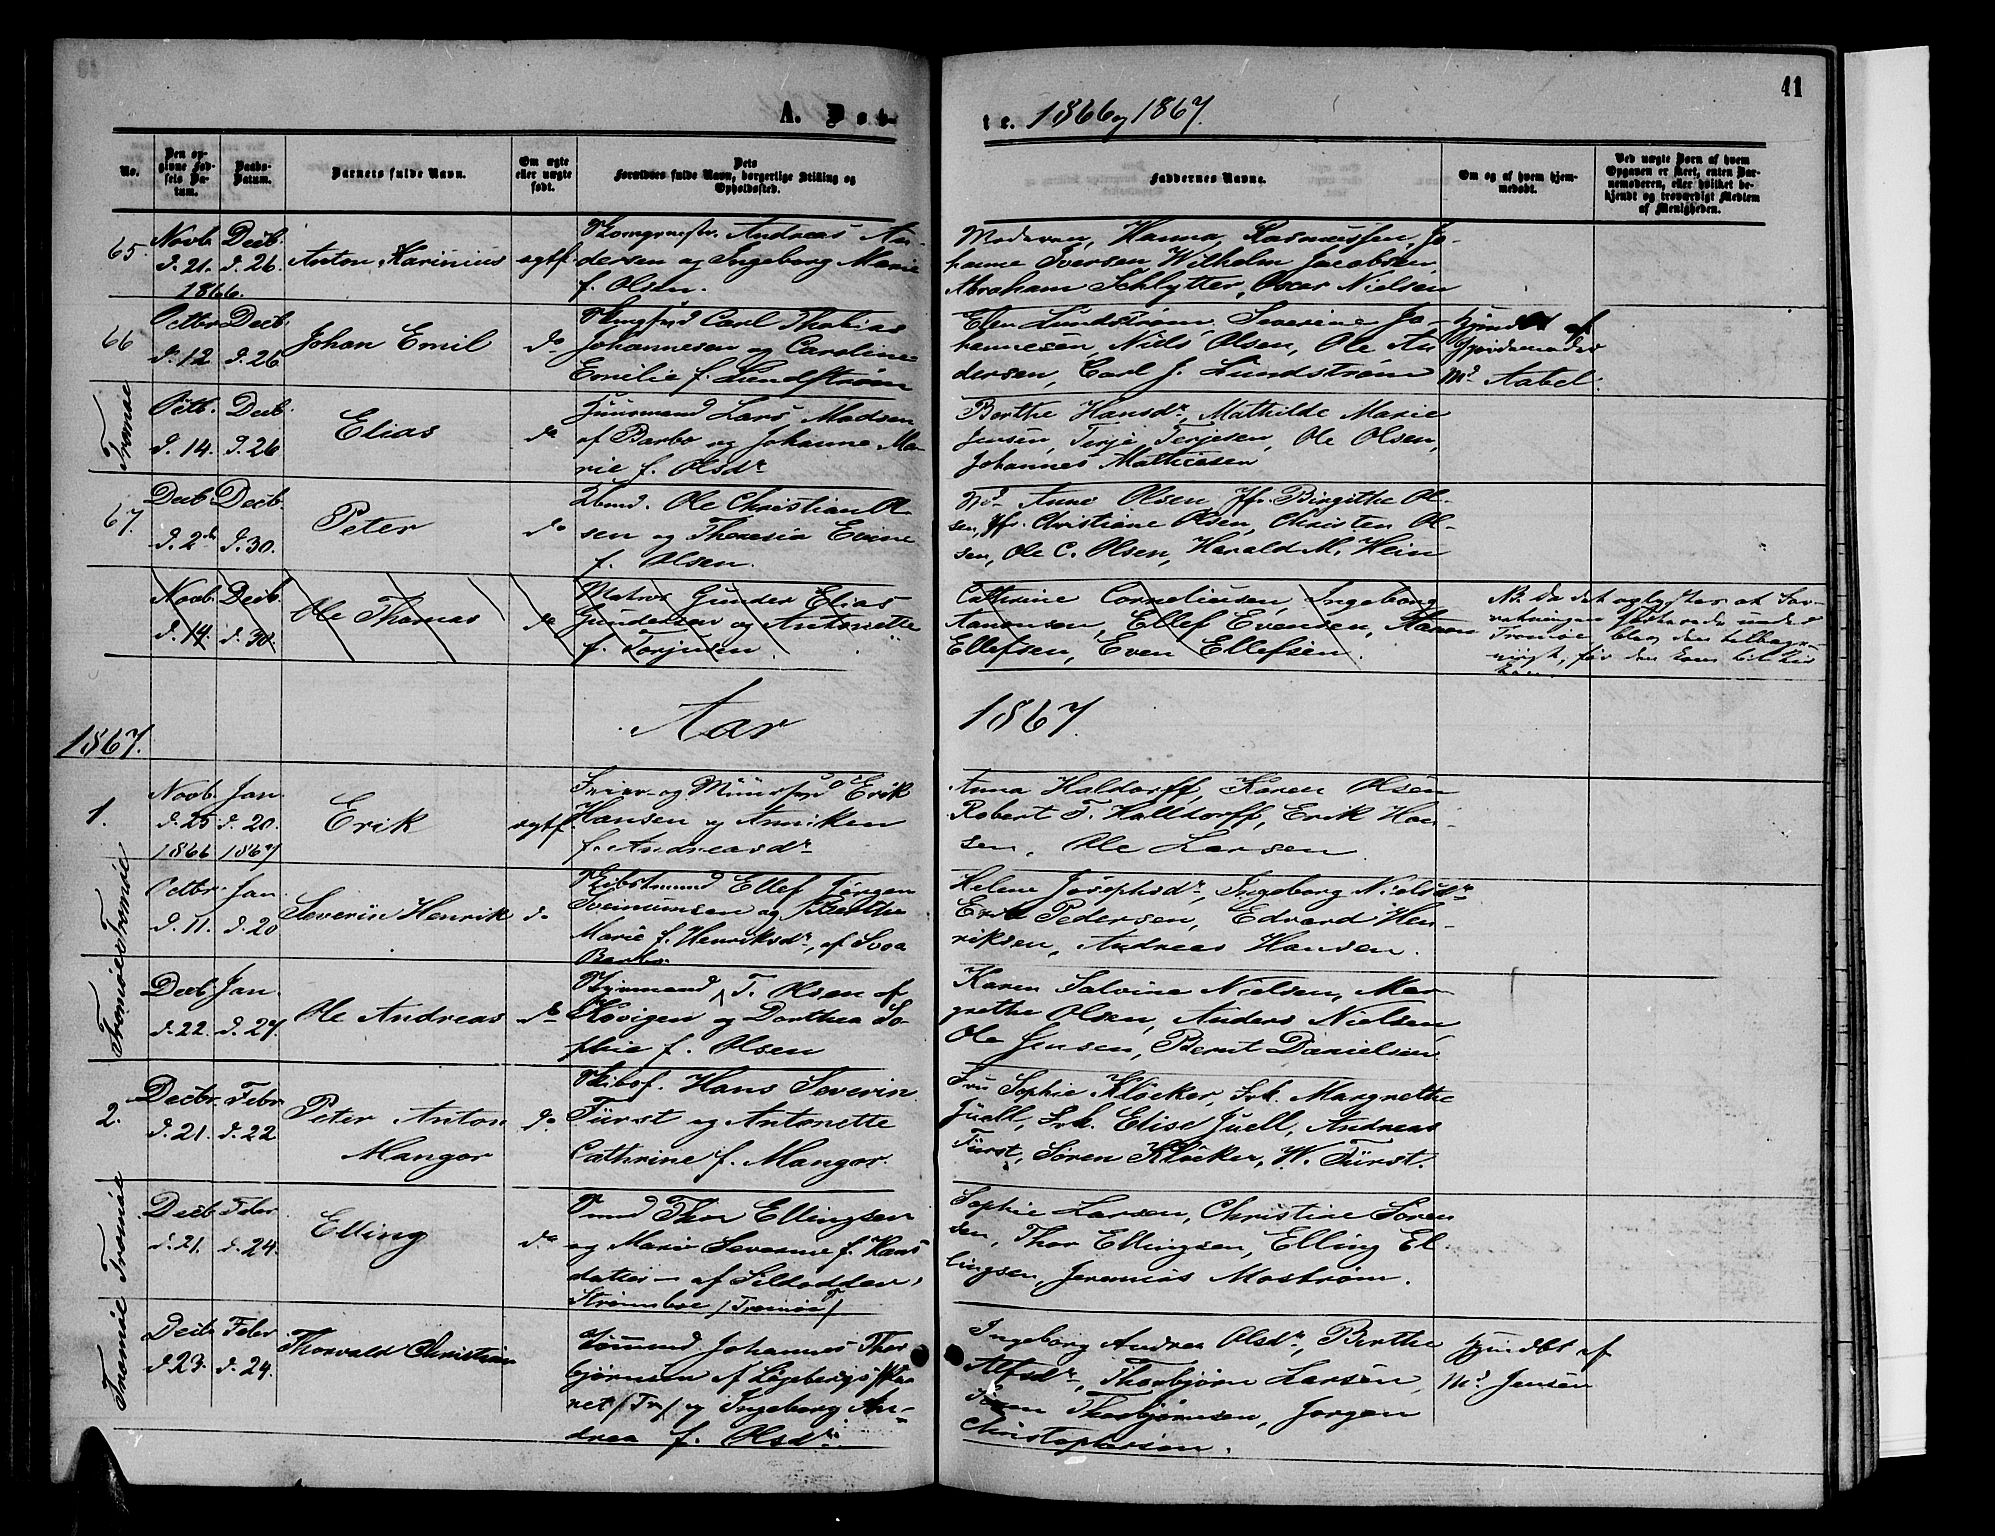 41
A. Døb-
te. 1866 og 1867.
No.
Den op-
givne Fød-
sels Da-
tum.
Daabs-
Datum.
Barnets fulde Navn.
Om ægte
eller uægte
født.
Dets
Forældres fulde Navn, borgerlige Stilling og
Opholdssted.
Faddernes Navne.
Om og af hvem hjem-
medøbt.
Ved uægte Børn af hvem
Opgaven er skeet, enten Bar-
nemoderen, eller hvilket be-
kjendt og troværdigt Medlem
af Menigheden.
65.
Novb.
d. 21.
1866.
Decb.
d. 26.
Anton Karinius
ægtf.
Andreas An-
dersen og Ingeborg Marie
f. Olsen.
Moderen, Hanna Rasmussen, Jo-
hanne Iversen, Wilhelm Jacobsen,
Abraham Schlytter, Oscar Nielsen
66
Octbr
d. 12
Decb.
d. 26
Johan Emil
do
Carl Thobias
Johannesen og Caroline
Emilie f. Lundstrøm
Elen Lundstrøm, Severine Jo-
hannesen, Niels Olsen, Ole An-
dersen, Carl J. Lundstrøm
hjmdbt af
Gjordemoder
Md. Aabel.
Tromøe
Octb.
d. 14.
Decb.
d. 26
Elias
do
Huusmand Lars Madsen
af Barbo og Johanne Ma-
rie f. Olsdr
Berthe Hansdr, Mathilde Marie
Jensen, Terje Terjesen, Ole Olsen,
Johannes Mathiesen
67.
Decb.
d. 2de
Decb.
d. 30.
Peter
do
Ole Christian Ol-
sen og Theresia Evine
f. Olsen.
Md. Anne Olsen, Jfr. Birgithe Ol-
sen, Jfr. Christiane Olsen, Christen Ol-
sen, Ole C. Olsen, Harald M. Hein
Novb.
d. 14
Decb.
d. 30.
Ole Thomas
do
Matros Gunder Elias
Gundersen og Antonette
f. Torjusen.
Cathrine Corneliusen, Ingeborg
Aanonsen, Ellef Evensen, Aanon
Ellefsen, Even Ellefsen.
NB. Da det oplystes at For-
retningen henhørede under
Tromøe, blev den
før den kom til
1867.
Aar
1867.
1.
Novb.
d. 25
1866
Jan.
d. 20.
1867
Erik
ægtf.
Feier- og Muursvend Erik
Hansen og Anniken
f. Andreasdr
Anna Haldorff, Karen Olsen
Robert T. Halldorff, Erik Han-
sen, Ole Larsen
Tromøe
Octbr.
d. 11.
Jan.
d. 20
Severin Henrik
do
Skibstmmd Ellef Jørgen
Sveinumsen og Berthe
Marie f. Henriksdr, af
Barbo
Helene Josephsdr, Ingeborg Nielsdr
Erik Pedersen, Edvard Hen-
riksen, Andreas Hansen.
Tromøe
Decb.
d. 22.
Jan.
d. 27.
Ole Andreas
do
T. Olsen af
Skovigen og Dorthea So-
phie f. Olsen
Karen Salvine Nielsen, Mar-
grethe Olsen, Anders Nielsen,
Ole Jensen, Bernt Danielsen
2.
Decbr.
d. 21.
Febr
d. 22
Peter Anton
Mangor
do
Skibsf. Hans Severin
Fürst og Antonette
Cathrine f. Mangor.
Fru Sophie Kløcker, Frk. Margrethe
Juell, Frk. Elise Juell, Andreas
Fürst, Søren Kløcker, W. Fürst.
Tromøe
Decb.
d. 21.
Febr
d. 24.
Elling
do
Thor Ellingsen
og Maria Severine f. Hans
datter - af Sildodden,
Strømsboe /Tromøe/
Sophie Larsen, Christine Søren
sen, Thor Ellingsen, Elling El-
lingsen, Jeremias Mostrøm.
Tromøe
Decb
d. 23.
Febr
d. 24.
Thorvald Christian
Johannes Thor
bjørnsen af
og Ingeborg An-
drea f. Olsdr
Ingeborg Andrea Olsdr, Berthe
Alfsdr, Thorbjørn Larsen,
Thorbjørnsen, Jørgen
Christophersen.
hjmdbt af
Md. Jensen